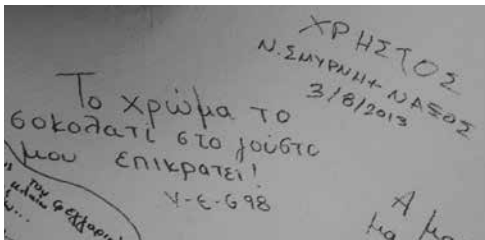 ΧΡΗΣΤΟΣ
Ν. ΣΜΥΡΝΗ + ΝΑΞΟΣ
3/8/2013
Το χρώμα το
σοκολατί στο γούστο
μου επικρατεί!
Υ-Ε-G98
του
φεγγαριο
Α μο
μα